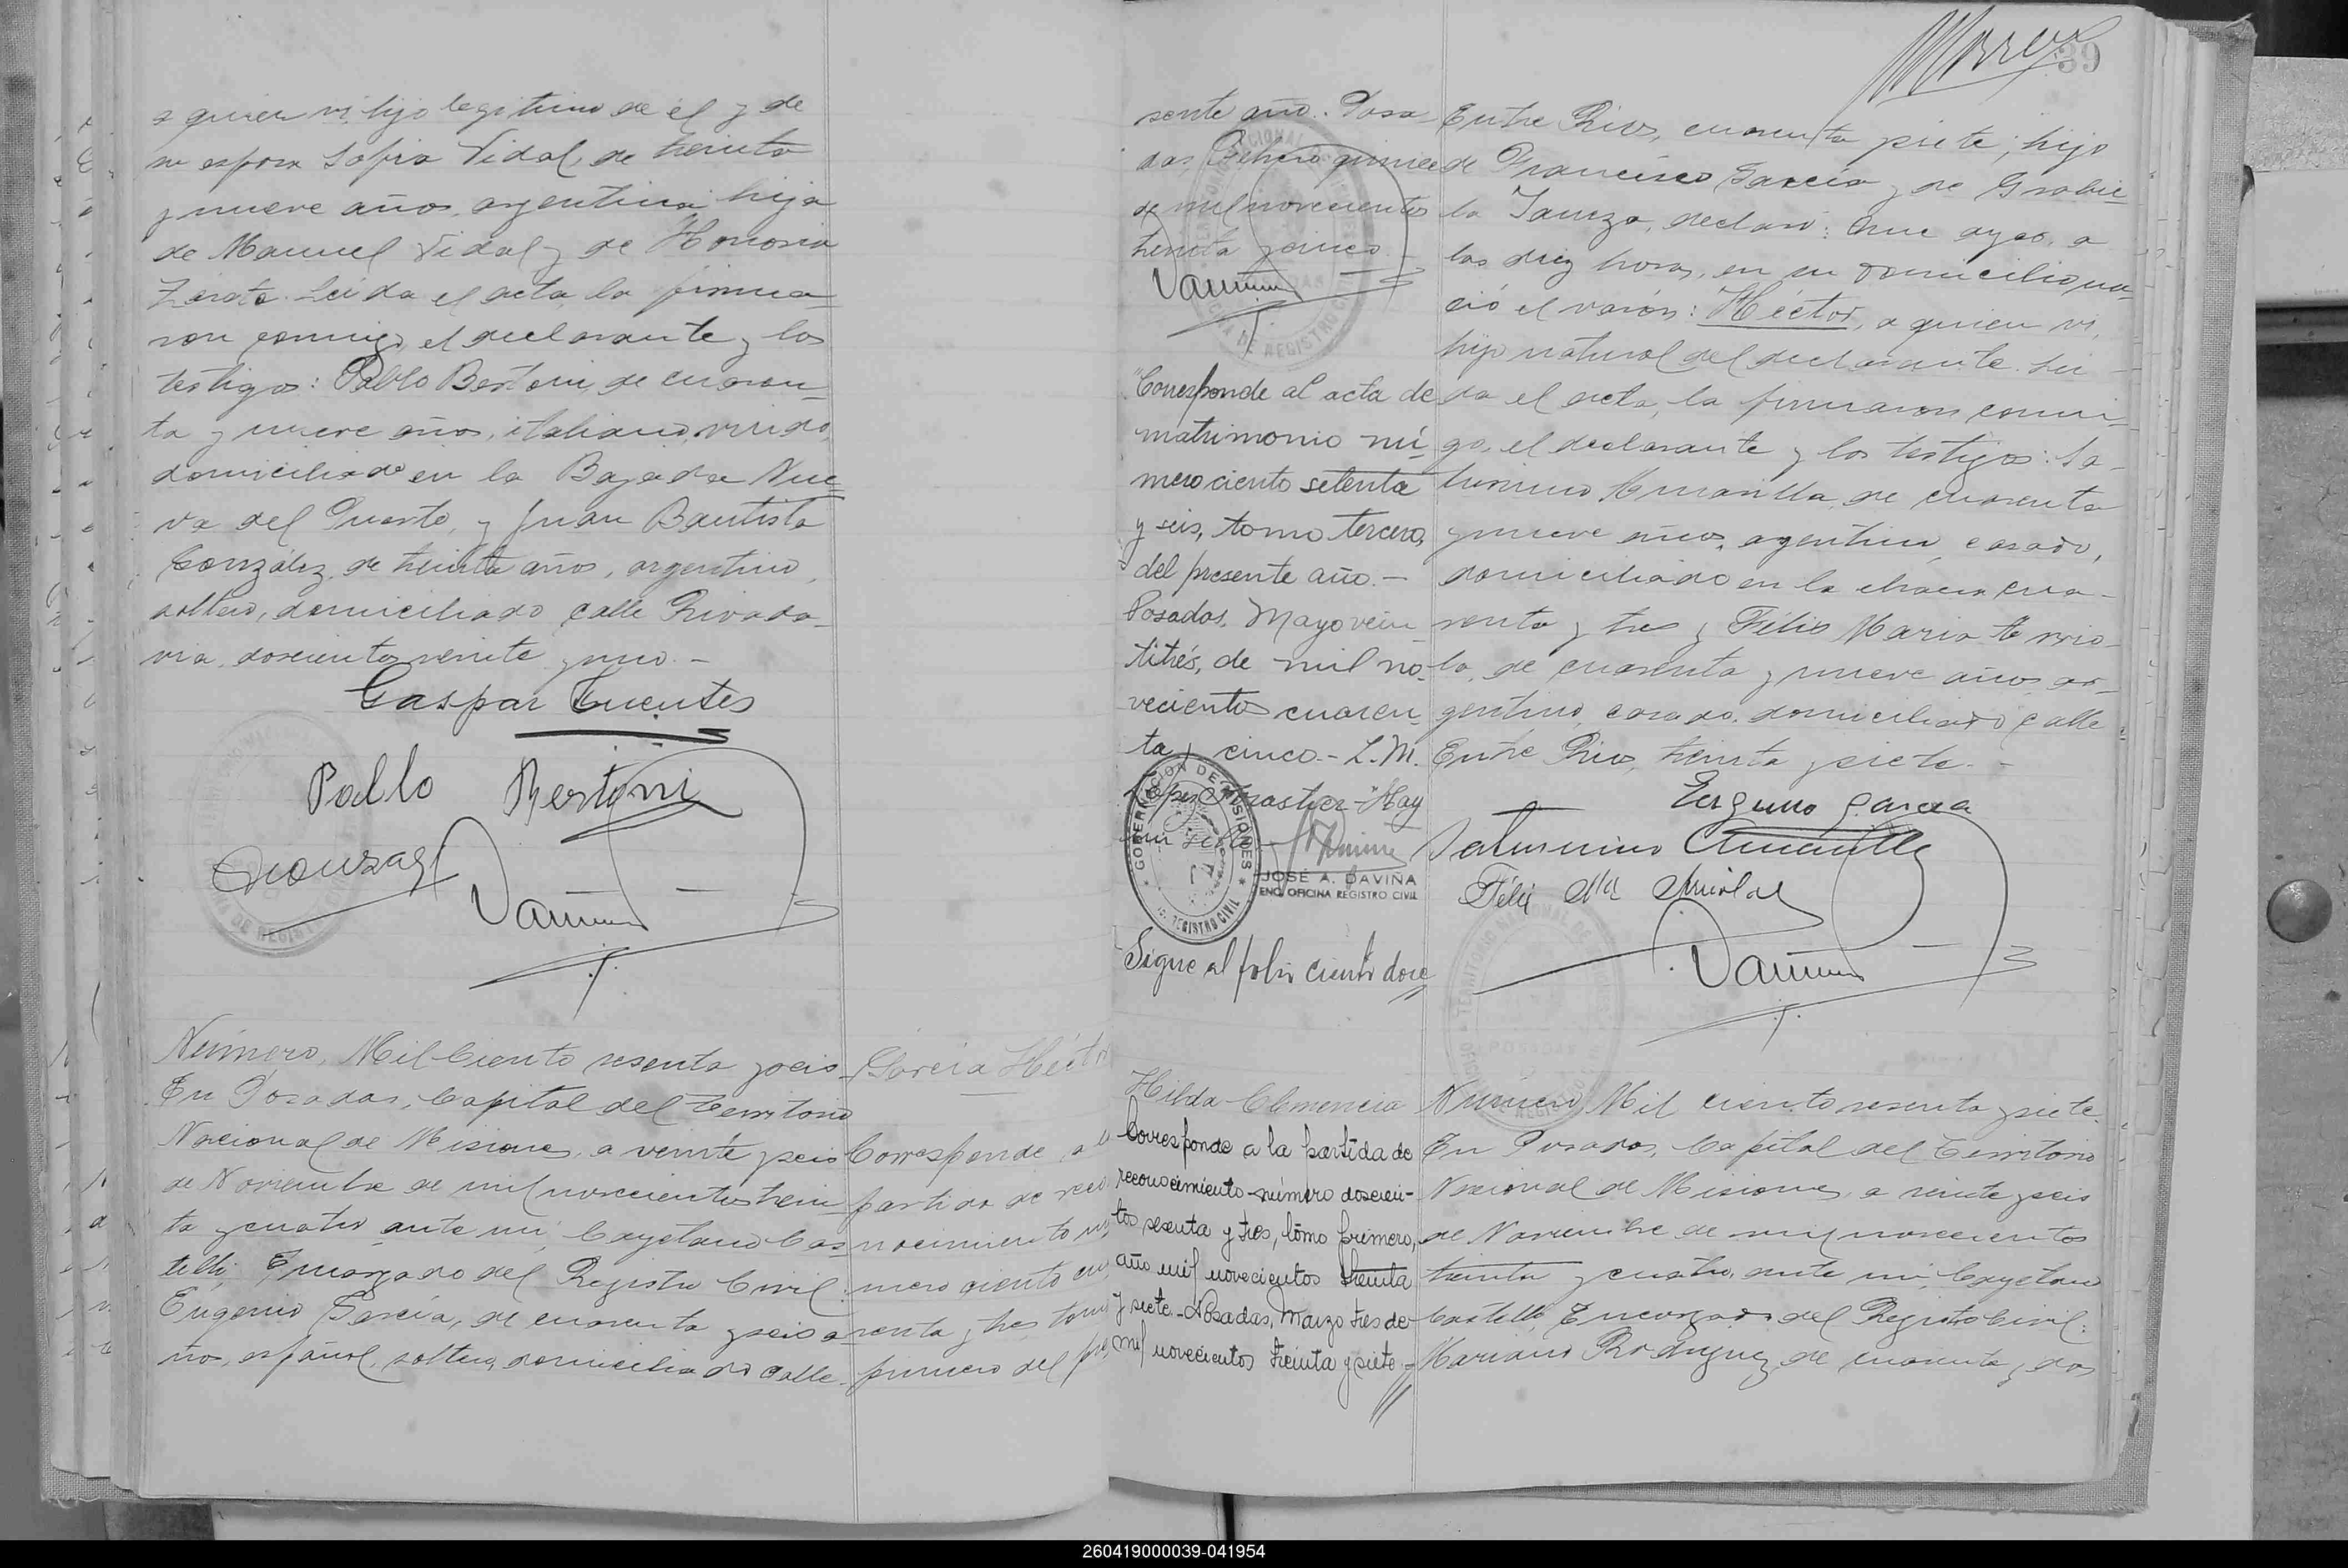 a quien vi hijo legitimo de él y de
su esposa Sofia Vidal, de treinta
y nueve años, argentina hija
de Manuel Vidal y de Honoria
Zarate. Leida el acta, la firma
ron conmigo, el declarante y los
testigos: Pablo Bertoni, de cuaren-
ta y nueve años, italiano, viudo,
domiciliado en la Bajada Nue
va del Puerto, y Juan Bautista
González, de treinta años, argentino,
soltero, domiciliado calle Rivada-
via doscientos veinte y uno.-
Gaspar Fuentes
Pablo Bertoni
Número, Mil Ciento sesenta y seis
En Posadas, Capital del Territorio
Nacional de Misiones, a veinte y seis
de Noviembre de mil novecientos trein
ta y cuatro ante mi, Cayetano Cas
telli, Encargado del Registro Civil:
Eugenio García, de cuarenta y seis a
ños, español, soltero, domiciliado calle
García Héct
Corresponde a
partida de reco
nocimiento nú
mero ciento cua
renta y tres tomo
primero del pre
39
sente año. Posa
das, Febrero quince
de mil novecientos
treinta y cinco
"Corresponde al acta de
matrimonio nú
mero ciento setenta
y seis, tomo tercero,
del presente año.-
Posadas, Mayo vein
titrés, de mil no-
vecientos cuaren
ta y cinco.- L.M.
Hay
un sello
GOBERNACION DE MISIONES
REGISTRO CIVIL
JOSÉ A. DAVIÑA
ENC. OFICINA REGISTRO CIVIL
Sigue al folio ciento doce
Entre Rios, cuarenta y siete; hijo
de Francisco García y de Grabie
la declaró: Que ayer, a
las diez horas, en su domicilio na-
ció el varón: Héctor, a quien vi,
hijo natural del declarante. Lei-
da el acta, la firmaron conmi-
go, el declarante y los testigos: Sa-
turnino de cuarenta
y nueve años, argentino, casado,
domiciliado en la chacra cua-
renta y tres y Félix Maria
la, de cuarenta y nueve años, ar-
gentino, casado, domiciliado calle
Entre Rios, treinta y siete.-
Eugenio García
Saturnino
Félix Ma
TERRITORIO NACIONAL DE MISIONES
POSADAS
Hilda Clemencia
Corresponde a la partida de
reconocimiento número doscien-
tos sesenta y tres, tomo primero,
año mil novecientos treinta
y siete.- Posadas, Marzo tres de
mil novecientos treinta y siete.-
Número Mil ciento sesenta y siete.
En Posadas, Capital del Territorio
Nacional de Misiones, a veinte y seis
de Noviembre de mil novecientos
treinta y cuatro, ante mi, Cayetano
Castelli, Encargado del Registro Civil:
Mariano Rodriguez, de cuarenta y dos
260419000039-041954